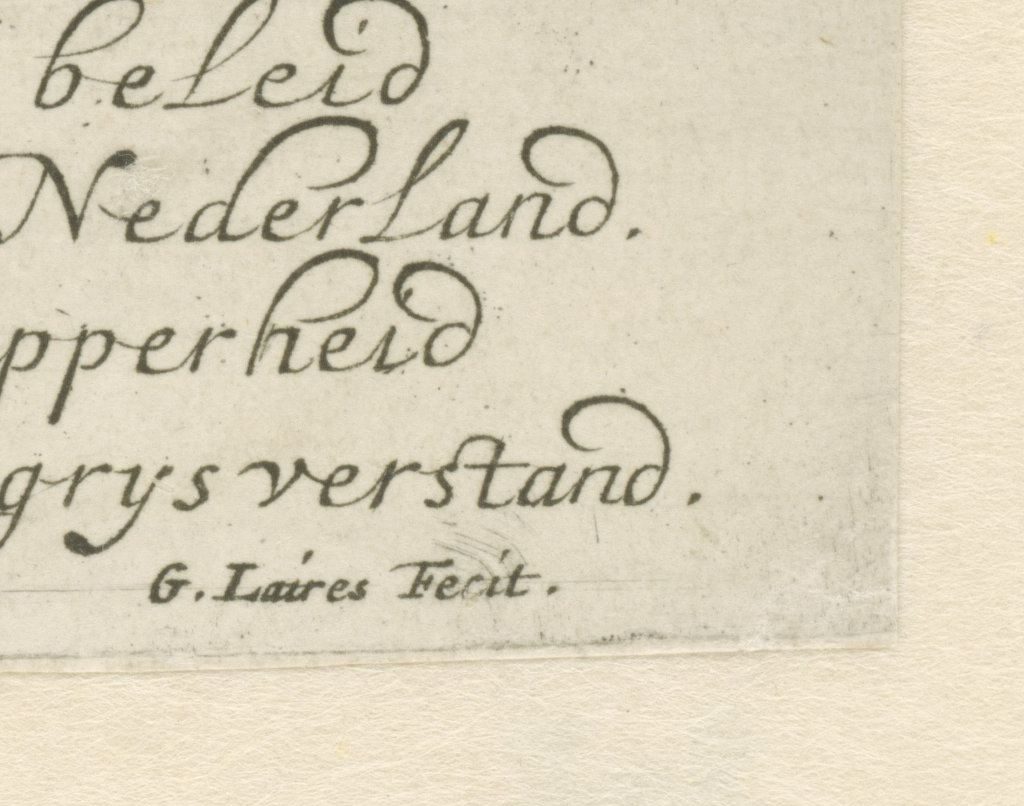 beleid
Nederland.
pperheid
grys verstand.
G. Laires Fecit.